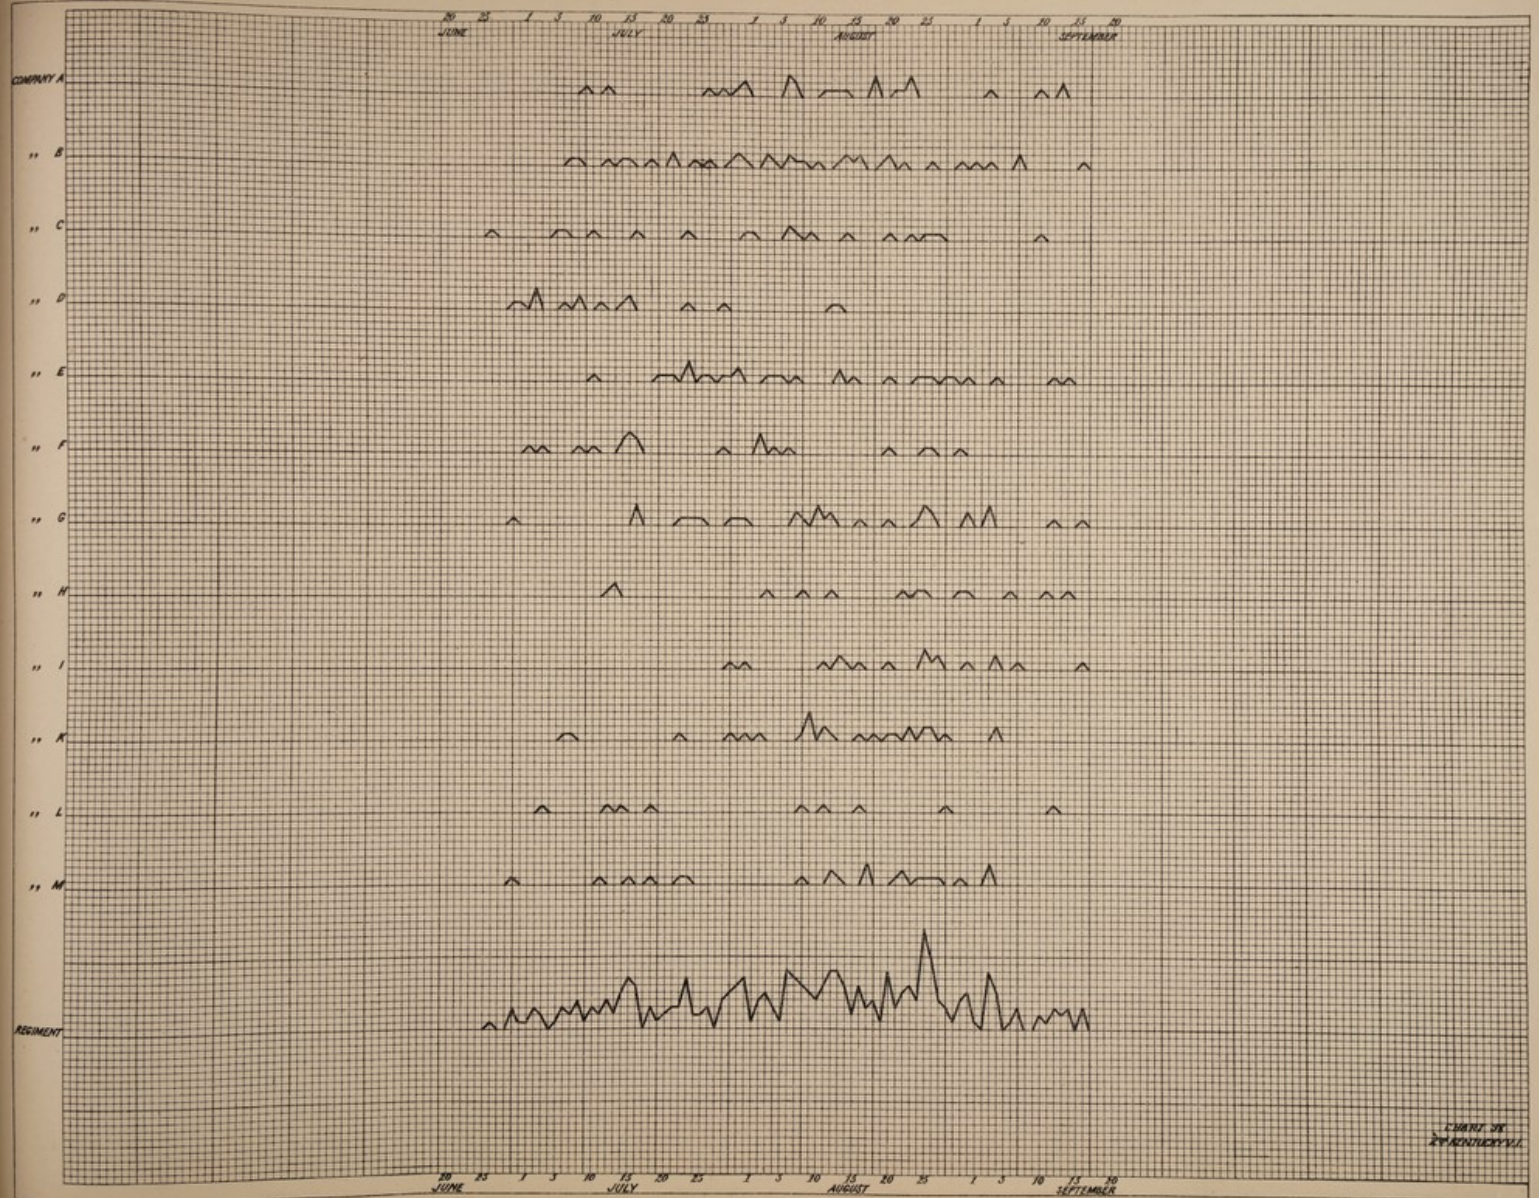 20 25 1 5 10 15 20 25 1 5 10 15 20 25 1 5 10 15 20
JUNE JULY AUGUST SEPTEMBER
COMPANY A
,, B
,, C
,, D
,, E
,, F
,, G
,, H
,, I
,, K
,, L
,, M
REGIMENT
CHART 38
2ND KENTUCKY V.I.
20 25 1 5 10 15 20 25 1 5 10 15 20 25 1 5 10 15 20
JUNE JULY AUGUST SEPTEMBER